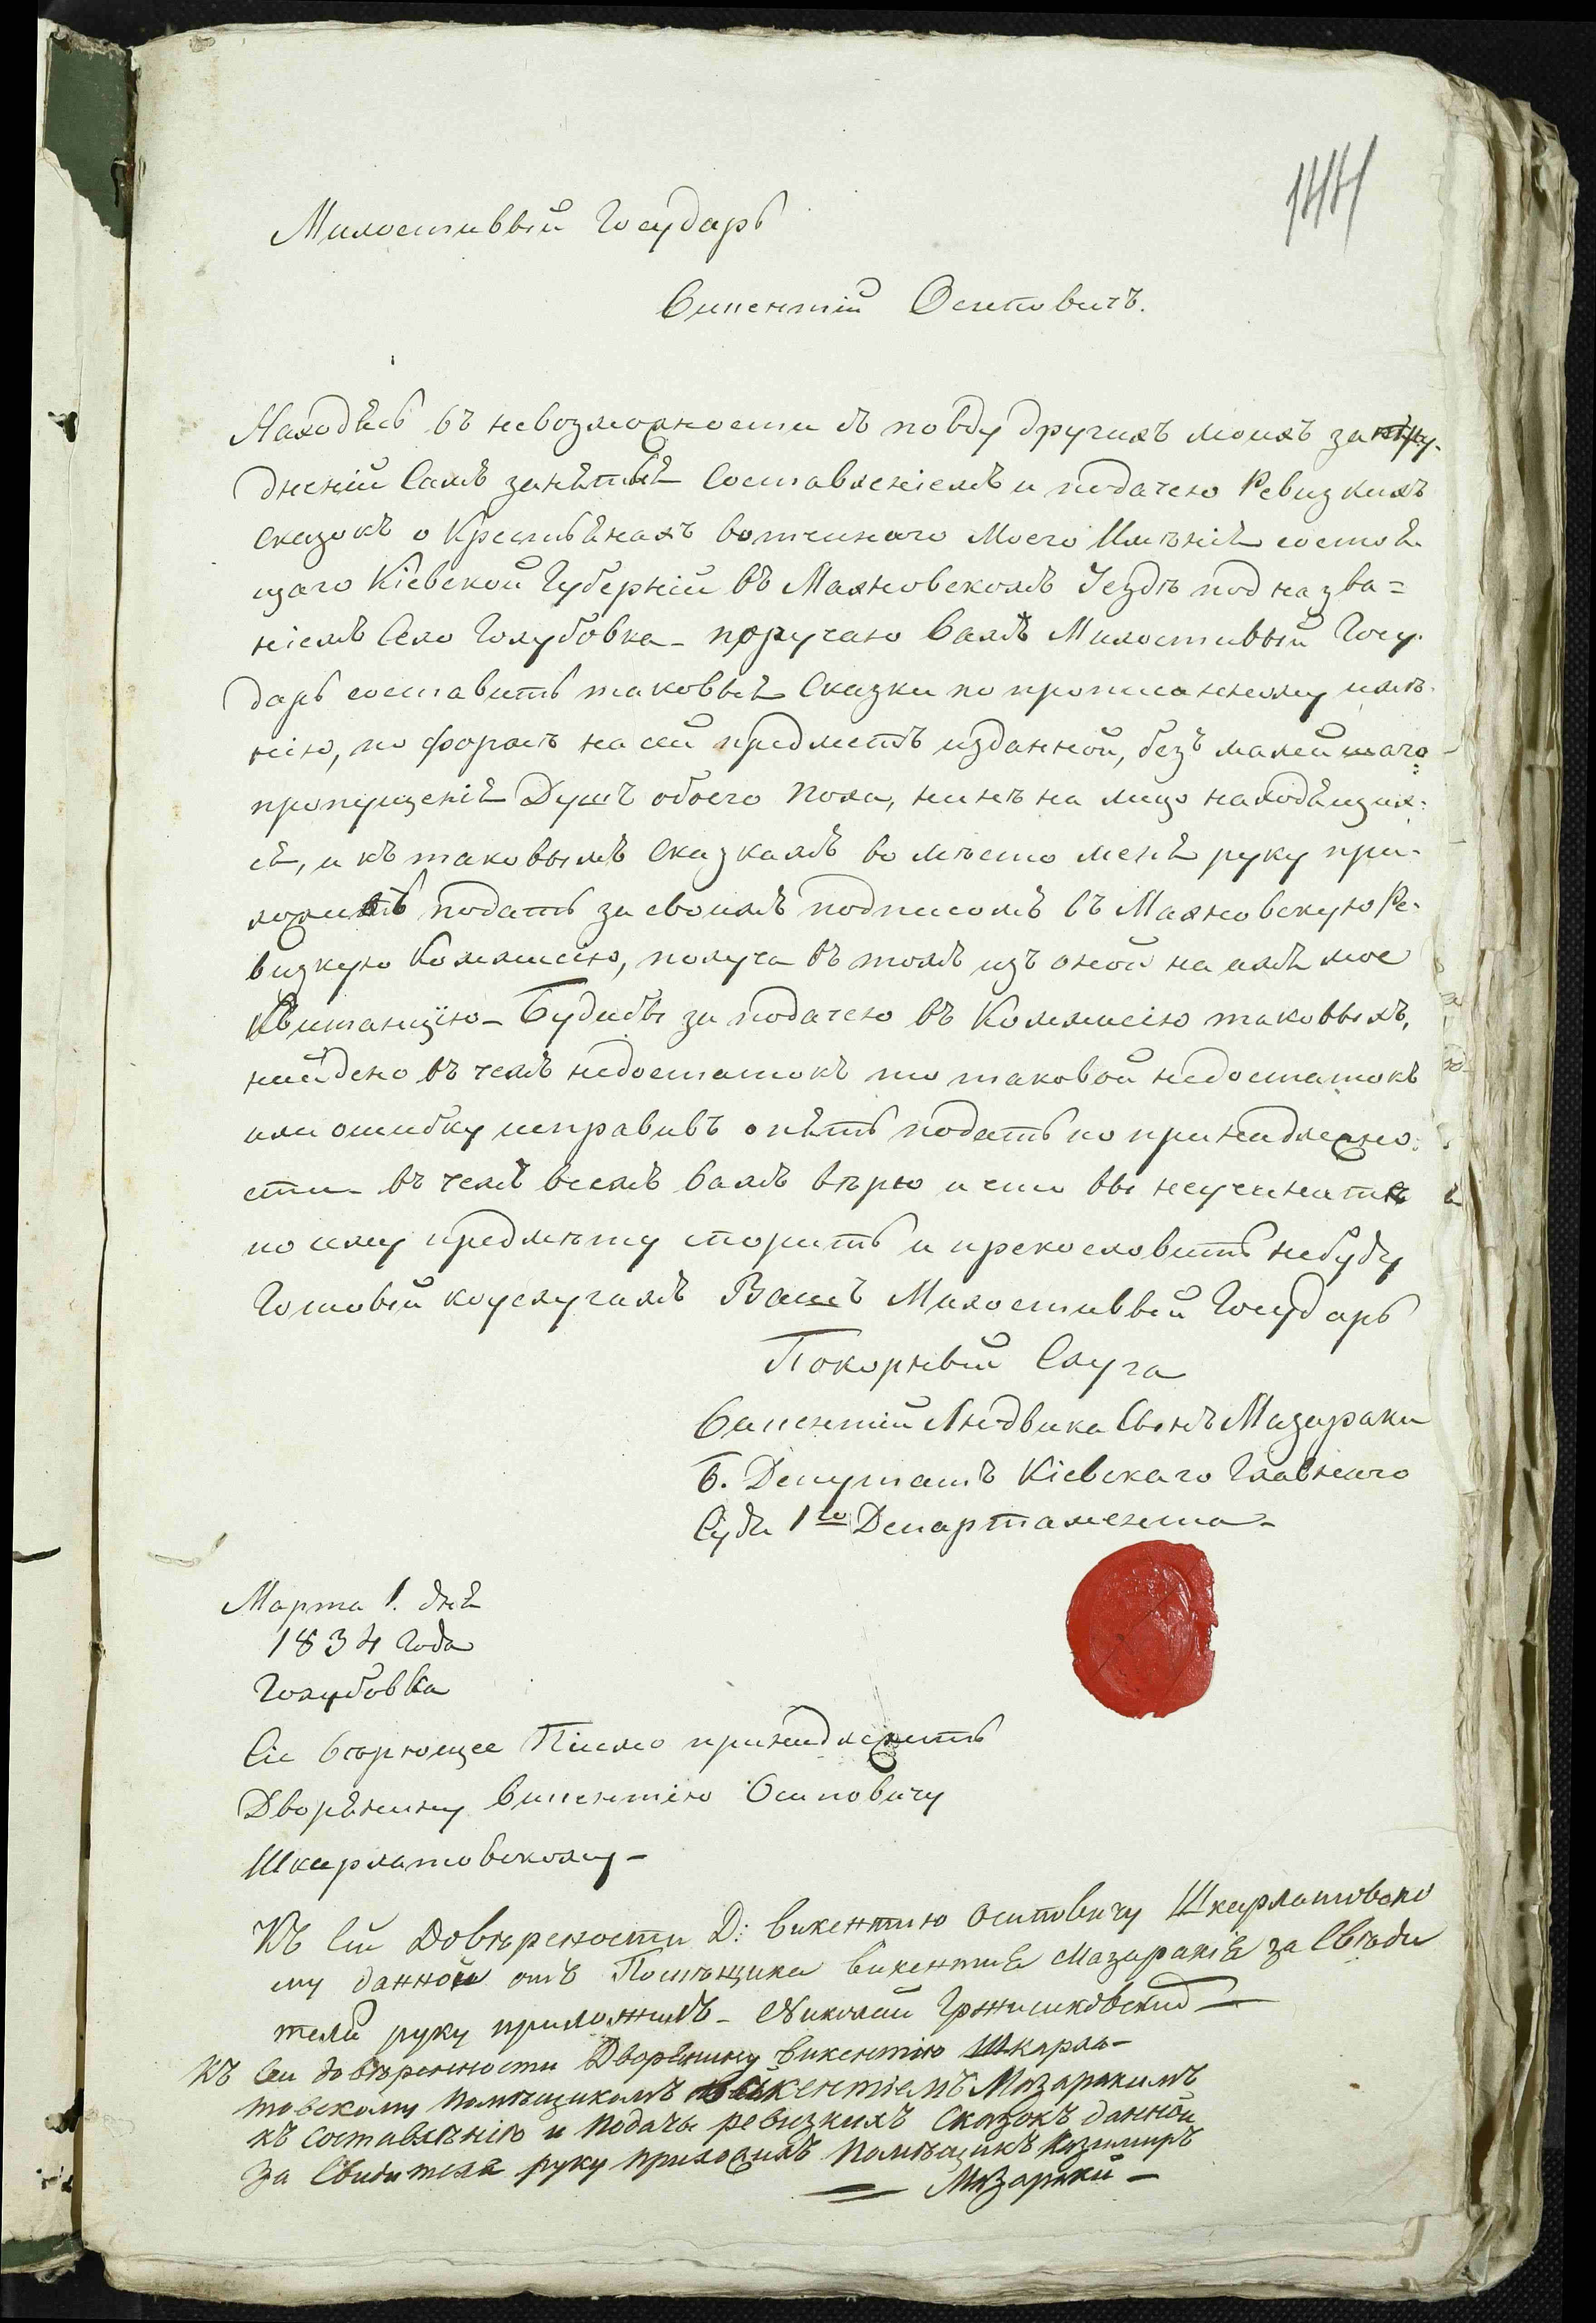 144
Милостивый Государь
Викентій Осиповичъ.
Находясь въ невозможности съ поводу другихъ моихъ затру-
дненій Самъ занятся Составленіемъ и подачею Ревизкихъ
Сказокъ о Крестьянахъ вотчинаго Моего Имѣнія состоя
щаго Кіевской Губерніи въ Махновскомъ Уездѣ под назва=
ніемъ Село Голубовка - поручаю Вамъ Милостивый Госу-
дарь составить таковыя Сказки по прописанному имѣ-
нію, по формѣ на сей предметъ изданной, безъ малейшаго
пропущенія Душъ обоего пола, нынѣ на лицо находящих-
ся, и къ таковымъ Сказкамъ во мѣсто меня руку при-
ложить подать за своимъ подписомъ въ Махновскую Ре-
визкую Коммисію, получа въ томъ изъ оной на имя мое
Квитанцію - Будебы за подачею въ Коммисію таковыхъ,
найдено въ чемъ недостатокъ то таковой недостатокъ
или ошибку исправивъ опять подать по принадлежно-
сти - въ чемъ всемъ вамъ вѣрю и что вы неучините
по сему предмѣту спорить и прекословить небуду
Готовый куслугамъ Вашъ Милостивый Государь
Покорный Слуга
Викентій Людвика Сынъ Мазараки
Б. Депутатъ Кіевскаго Главнаго
Суда 1го Департамента -
Марта 1. дня
1834 Года
Голубовка
Сіе вѣрющее Писмо принадлежить
Дворянину Викентію Осиповичу
Шкарлатовскому -
Къ Сей Довѣрености Д: Викентию Осиповичу Шкарлатовско
му данной отъ Помѣщика Викентия Мазаракія за Свѣди
теля руку приложилъ - Николай Гржисиковский
Къ Сеи довѣренности Дворянину Викентію Шкарла-
товскому Помѣщикомъ Викентіемъ Мазаракимъ
къ Составленію и подачѣ ревизкихъ Сказокъ данной
За Свидителя руку приложилъ Помѣщикъ Казимиръ
Мазараки -